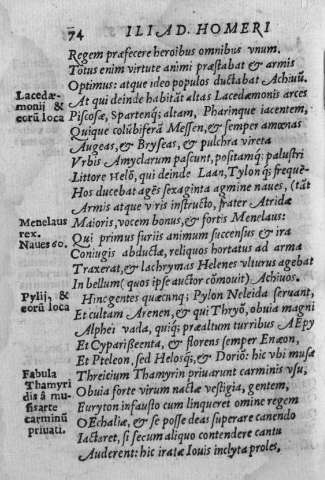 74 ILIAD. HOMERI
Regem præfecere heroibus omnibus vnum.
Totus enim virtute animi præstabat & armis
Optimus: atque ideo populos ductabat Achiuũ.
Lacedæ-
monij &
eorũ loca
At qui deinde habitãt altas Lacedæmonis arces
Piscosæ, Spartenq́; altam, Pharinque iacentem,
Quique colũbiferã Messen, & semper amœnas
Augeas, & Bryseas, & pulchra vireta
Vrbis Amyclarum pascunt, positamq́; palustri
Littore Helõ, qui deinde Laan, Tylon q́; frequẽ-
Hos ducebat agẽs sexaginta agmine naues, (tãt
Armis atque viris instructo, frater Atridæ
Menelaus
rex.
Naues 60.
Maioris, vocem bonus, & fortis Menelaus:
Qui primus furiis animum succensus & ira
Coniugis abductæ, reliquos hortatus ad arma
Traxerat, & lachrymas Helenes vlturus agebat
In bellum (quos ipse auctor cõmouit) Achiuos.
Pylij, &
eorũ loca
Hinc gentes quæcunq; Pylon Neleida seruant,
Et cultam Arenen, & qui Thryõ, obuia magni
Alphei vada, quiq́; præaltum turribus AEpy
Et Cyparißeenta, & florens semper Enæon,
Et Pteleon, sed Helosq́;, & Dorio: hic vbi musæ
Fabula
Thamyri
dis â mu-
sis arte
carminũ
priuati.
Threitium Thamyrin priuarunt carminis vsu,
Obuia forte virum nactæ vestigia, gentem,
Euryton infausto cum linqueret omine regem
OEchaliæ, & se posse deas superare canendo
Iactaret, si secum aliquo contendere cantu
Auderent: hic iratæ Iouis inclyta proles,